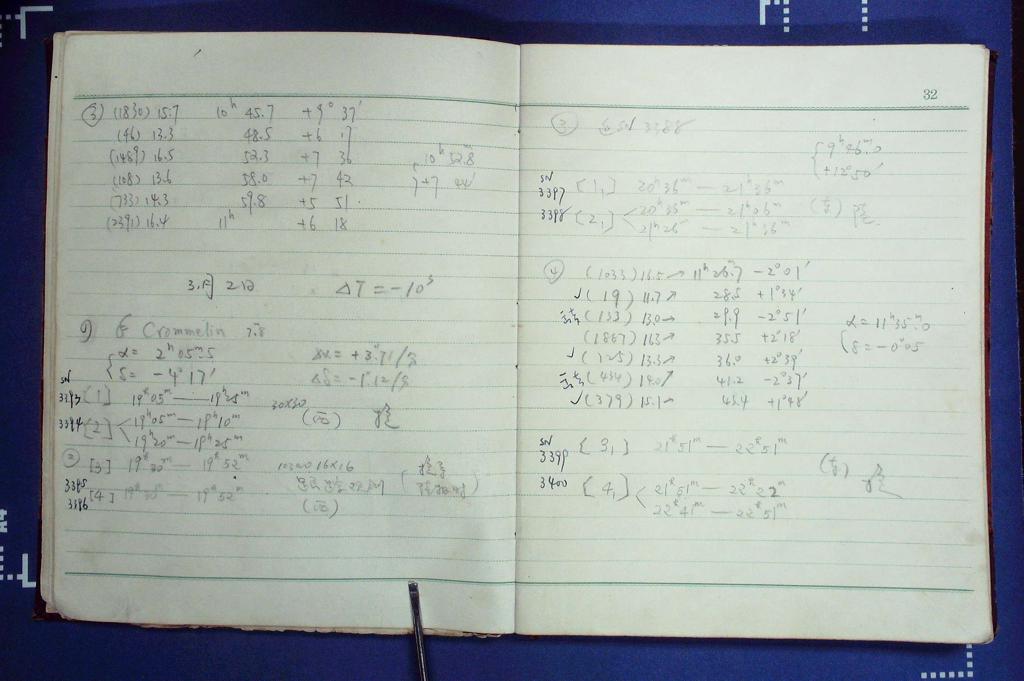 ③ (1830) 15.7 10ʰ 45.7 +9° 37′
(46) 13.3 48.5 +6 17
(1489) 16.5 52.3 +7 36
(108) 13.6 58.0 +7 42
(733) 14.3 59.8 +5 51
(2391) 16.4 11ʰ +6 18
{10ʰ 52.8
+7 44′
3月2日 ΔT = -10ˢ
Crommelin
{α = 2ʰ05ᵐ.5
δ = -4°17′
SN
3393 [1] 19ʰ05ᵐ — 19ʰ25ᵐ
3394 [2] 19ʰ05ᵐ — 19ʰ10ᵐ
19ʰ20ᵐ — 19ʰ25ᵐ
30×30
(西)
② [3] 19ʰ30ᵐ — 19ʰ52ᵐ
3395
3396 [4] 19ʰ30ᵐ — 19ʰ52ᵐ
(西)
32
③ SN 3388
{9ʰ26ᵐ.0
+12°50′
SN
3397 [1₁] 20ʰ36ᵐ — 21ʰ36ᵐ
3398 [2₁] 20ʰ35ᵐ — 21ʰ06ᵐ
21ʰ26ᵐ — 21ʰ36ᵐ
(东)
④ (1033) 16.5 ↗ 11ʰ 26ᵐ.7 -2°01′
✓(19) 11.7 ↗ 28.5 +1°34′
(133) 13.0 → 29.9 -2°51′
(1867) 16.3 → 35.5 +2°18′
✓(125) 13.3 ↗ 36.0 +2°39′
(434) 14.0 ↗ 41.2 -2°37′
✓(379) 15.1 → 45.4 +1°48′
{α = 11ʰ35ᵐ.0
δ = -0°05
SN
3399 [3₁] 21ʰ51ᵐ — 22ʰ51ᵐ
3400 [4₁] 21ʰ51ᵐ — 22ʰ22ᵐ
22ʰ41ᵐ — 22ʰ51ᵐ
(东)